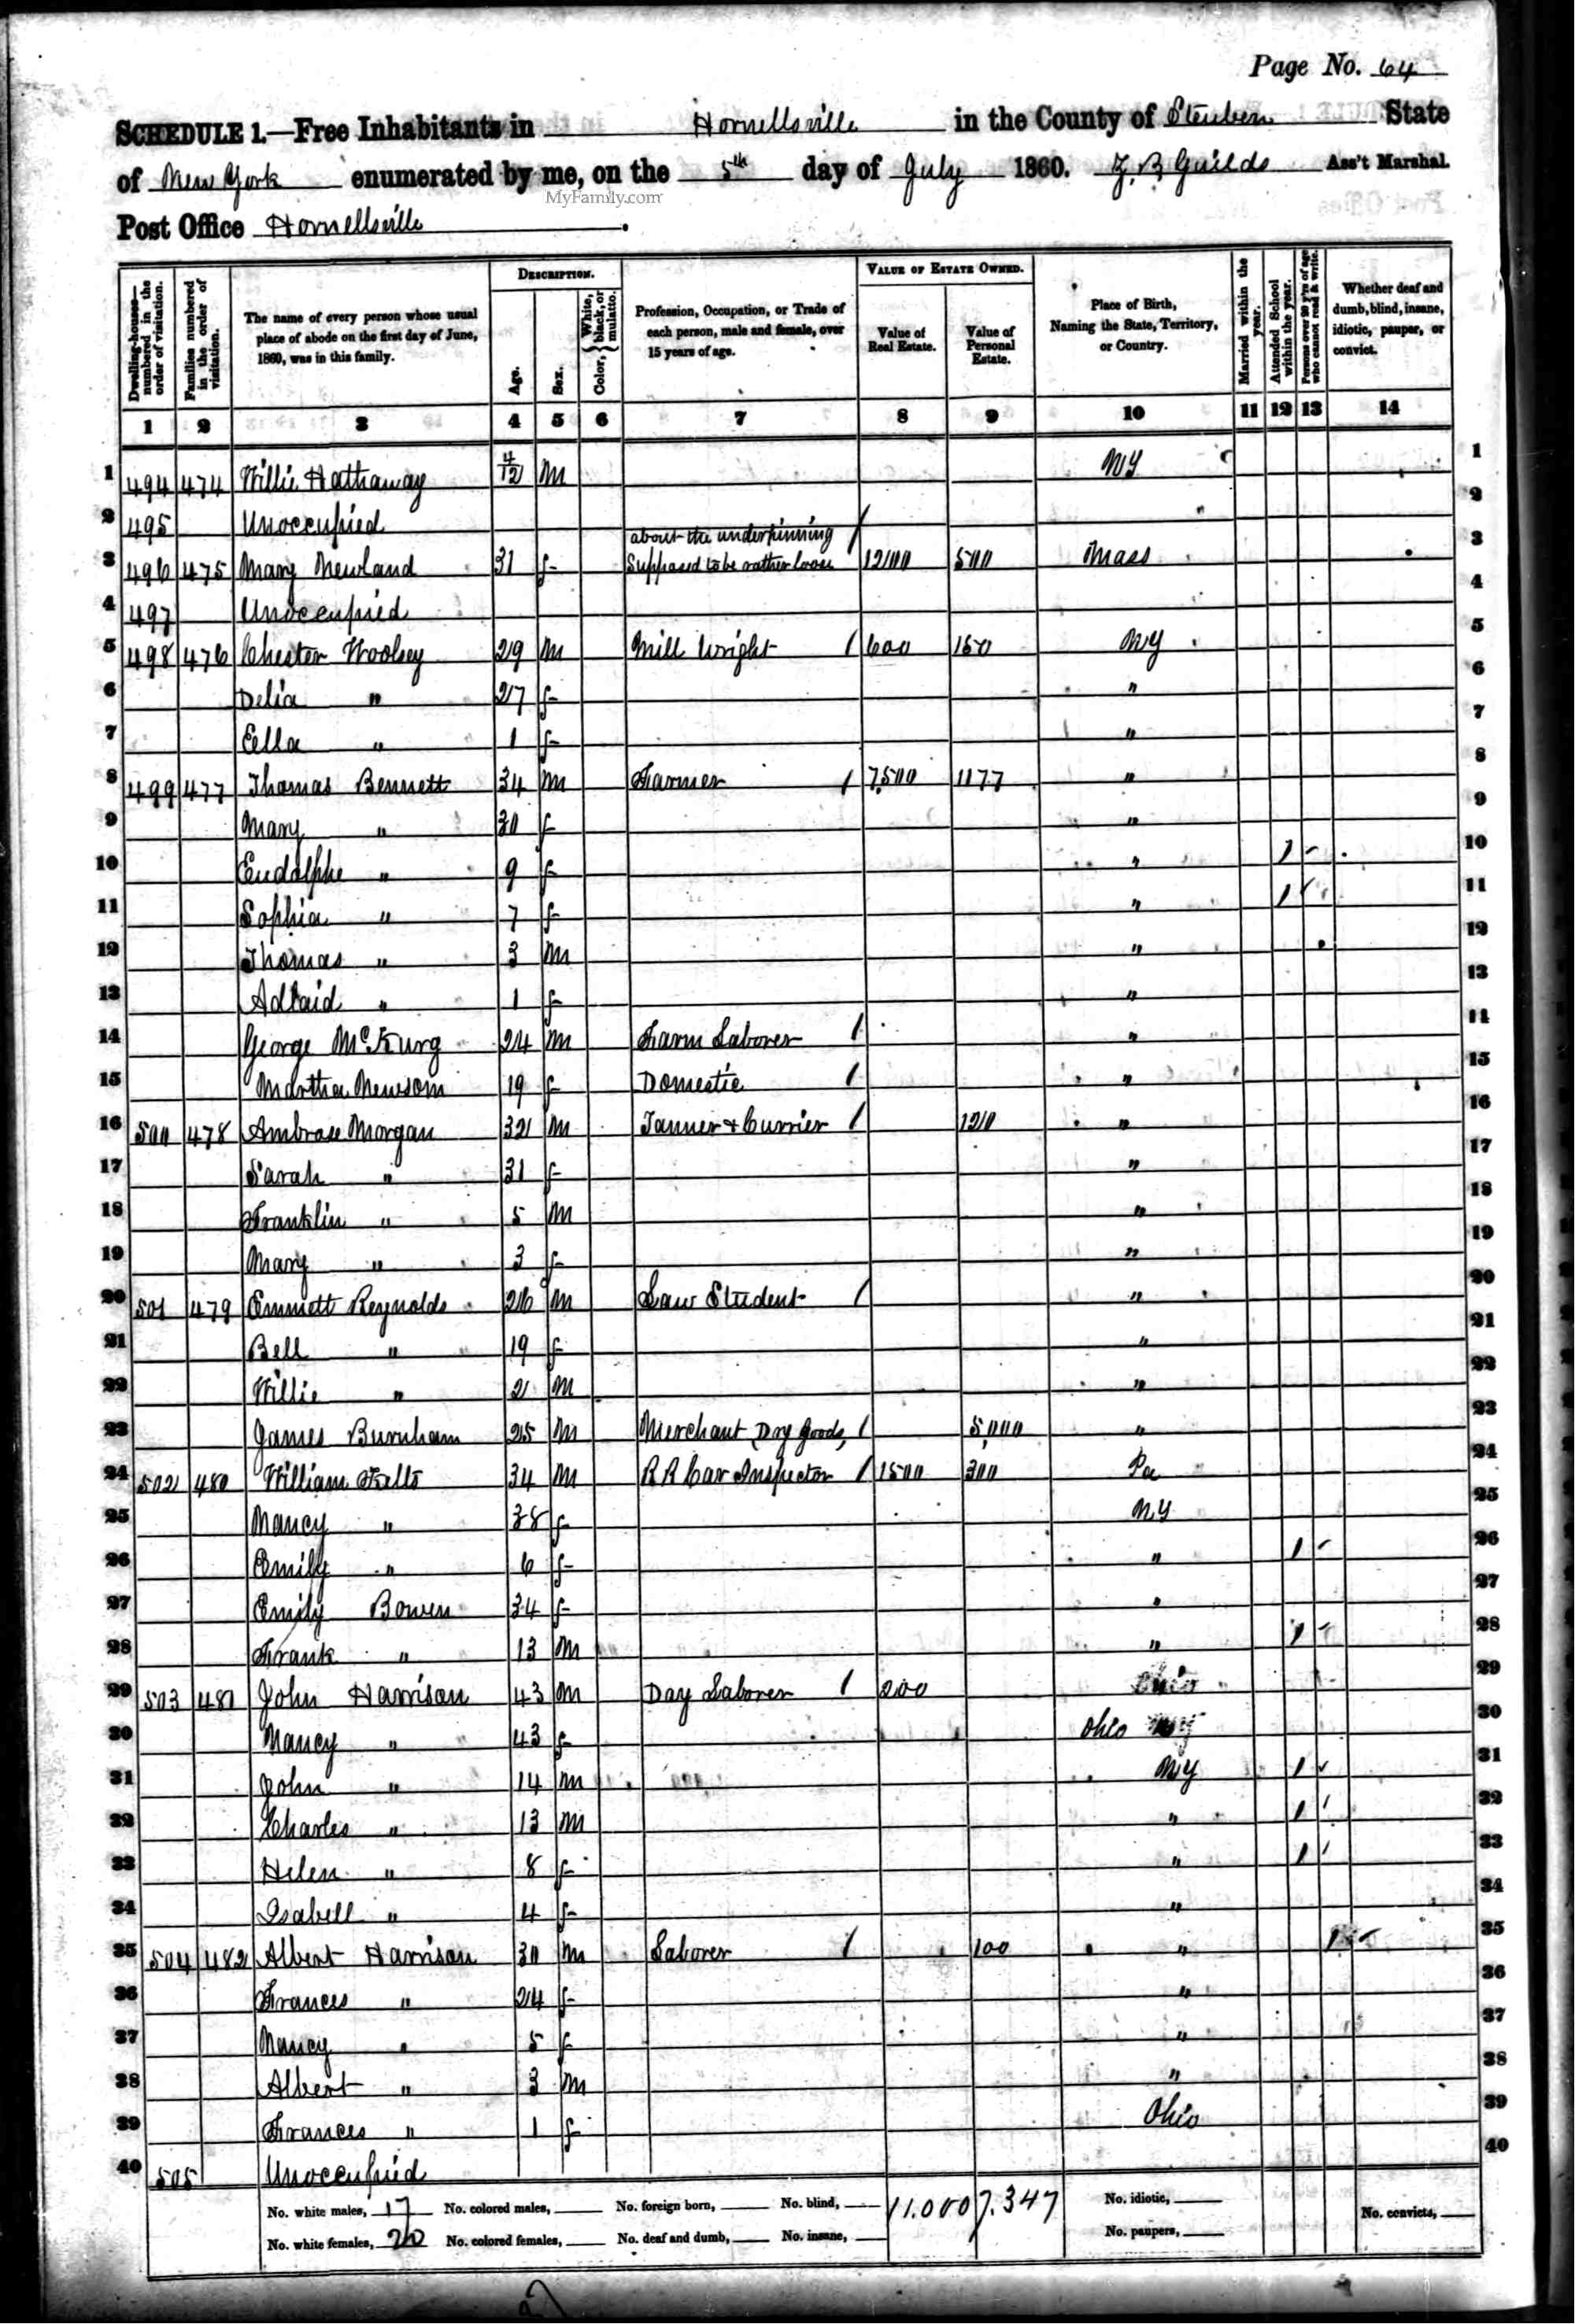 Page No. 64
SCHEDULE 1.—Free Inhabitants in Hornellsville in the County of Steuben State
of New York enumerated by me, on the 5th day of July 1860. Z. B Guilds Ass't Marshal.
MyFamily.com
Post Office Hornellsville.
Dwelling-houses—numbered in the order of visitation.
Families numbered in the order of visitation.
The name of every person whose usual place of abode on the first day of June, 1860, was in this family.
DESCRIPTION.
Age.
Sex.
Color, {White, black, or mulatto.
Profession, Occupation, or Trade of each person, male and female, over 15 years of age.
VALUE OF ESTATE OWNED.
Value of Real Estate.
Value of Personal Estate.
Place of Birth, Naming the State, Territory, or Country.
Married within the year.
Attended School within the year.
Persons over 20 y'rs of age who cannot read & write.
Whether deaf and dumb, blind, insane, idiotic, pauper, or convict.
1 2 3 4 5 6 7 8 9 10 11 12 13 14
1 494 474 Willie Hathaway 4/12 M NY 1
2 495 Unoccupied 2
about the underpinning /
3 496 475 Mary Newland 31 f Supposed to be rather loose 1200 500 Mass 3
4 497 Unoccupied 4
5 498 476 Chester Woolsey 29 M Mill Wright / 600 150 NY 5
6 Delia " 27 f " 6
7 Ella " 1 f " 7
8 499 477 Thomas Bennett 34 M Farmer / 7,500 1177 " 8
9 Mary " 30 f " 9
10 Eudolphe " 9 f " / 10
11 Sophia " 7 f " / 11
12 Thomas " 3 M " 12
13 Adlaid " 1 f " 13
14 George McKurg 24 M Farm Laborer / " 14
15 Martha Newsom 19 f Domestic / " 15
16 500 478 Ambrose Morgan 32 M Tanner & Currier / 120 " 16
17 Sarah " 31 f " 17
18 Franklin " 5 M " 18
19 Mary " 3 f " 19
20 501 479 Emmett Reynolds 26 M Law Student / " 20
21 Bell " 19 f " 21
22 Willie " 2 M " 22
23 James Burnham 25 M Merchant Dry Goods, / 5,000 " 23
24 502 480 William Fells 34 M R R Car Inspector / 1500 300 Pa 24
25 Nancy " 38 f NY 25
26 Emily " 6 f " / 26
27 Emily Bowen 34 f " 27
28 Frank " 13 M " / 28
29 503 481 John Harrison 43 M Day Laborer / 200 Ohio 29
30 Nancy " 43 f Ohio 30
31 John " 14 M NY / 31
32 Charles " 13 M " / 32
33 Helen " 8 f " / 33
34 Isabell " 4 f " 34
35 504 482 Albert Harrison 30 M Laborer / 100 " / 35
36 Frances " 24 f " 36
37 Nancy " 5 f " 37
38 Albert " 3 M " 38
39 Frances " 1 f Ohio 39
40 505 Unoccupied 40
No. white males, 17 No. colored males, No. foreign born, No. blind, 11.000 7.347 No. idiotic, No. convicts,
No. white females, 20 No. colored females, No. deaf and dumb, No. insane, No. paupers,